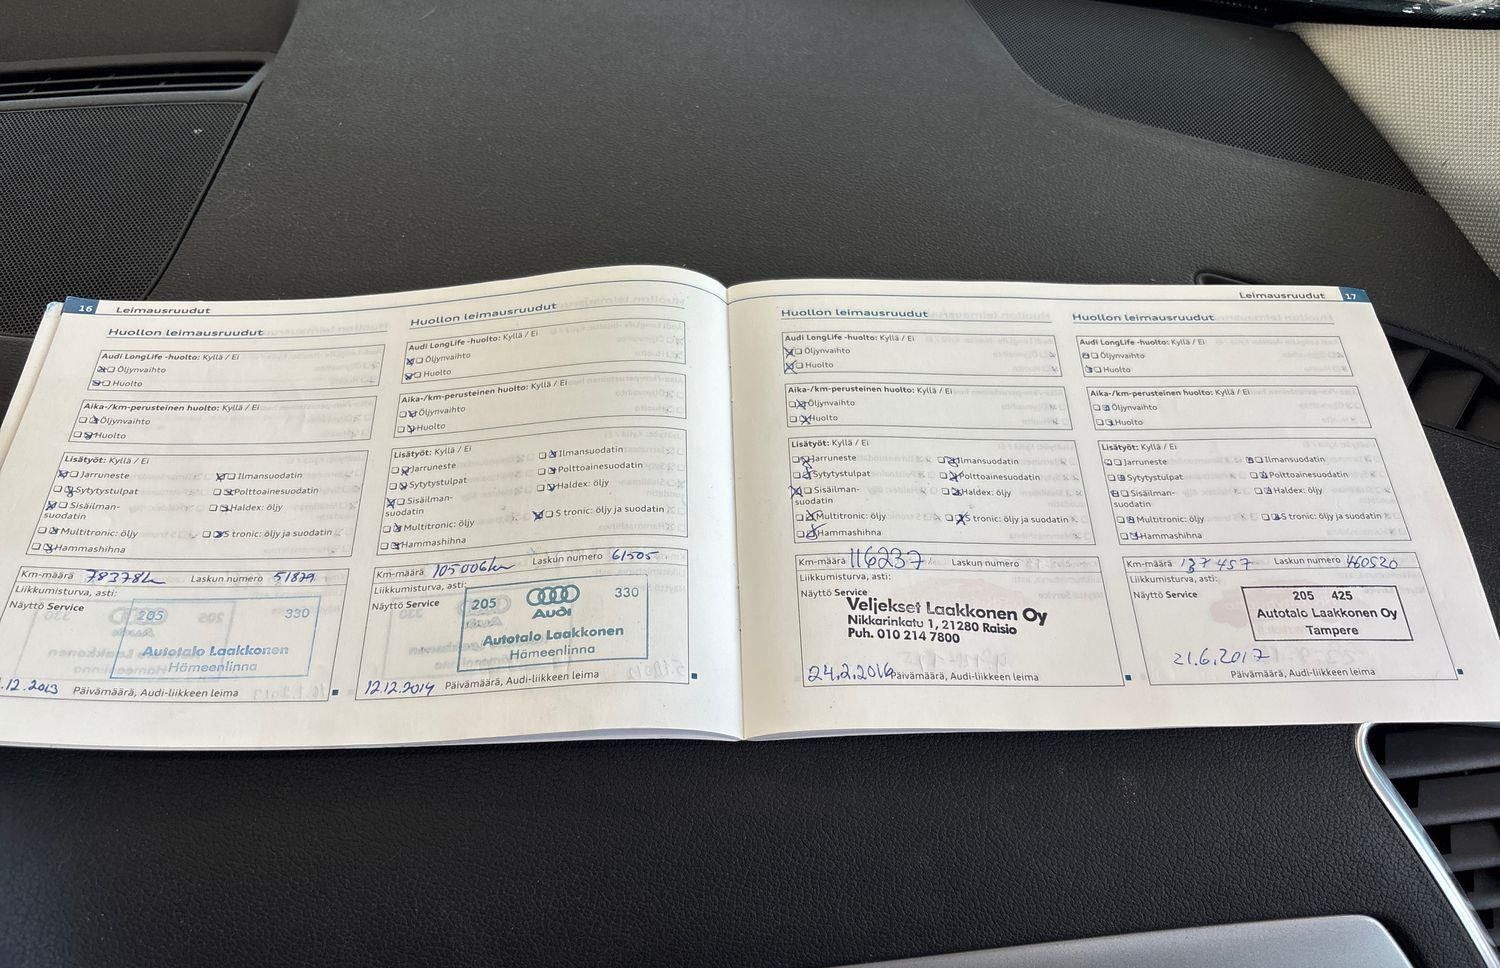 16 Leimausruudut
Huollon leimausruudut
Audi LongLife -huolto: Kyllä / Ei
Öljynvaihto
Huolto
Aika-/km-perusteinen huolto: Kyllä / Ei
Öljynvaihto
Huolto
Lisätyöt: Kyllä / Ei
Jarruneste
Ilmansuodatin
Sytytystulpat
Polttoainesuodatin
Sisäilman-
suodatin
Haldex: öljy
Multitronic: öljy
S tronic: öljy ja suodatin
Hammashihna
Km-määrä 78378km Laskun numero 51879
Liikkumisturva, asti:
Näyttö Service
205 330
Autotalo Laakkonen
Hämeenlinna
.12.2013 Päivämäärä, Audi-liikkeen leima
Huollon leimausruudut
Audi LongLife -huolto: Kyllä / Ei
Öljynvaihto
Huolto
Aika-/km-perusteinen huolto: Kyllä / Ei
Öljynvaihto
Huolto
Lisätyöt: Kyllä / Ei
Jarruneste
Ilmansuodatin
Sytytystulpat
Polttoainesuodatin
Sisäilman-
suodatin
Haldex: öljy
Multitronic: öljy
S tronic: öljy ja suodatin
Hammashihna
Km-määrä 105006km Laskun numero 61505
Liikkumisturva, asti:
Näyttö Service
205 330
Audi
Autotalo Laakkonen
Hämeenlinna
12.12.2014 Päivämäärä, Audi-liikkeen leima
Leimausruudut 17
Huollon leimausruudut
Audi LongLife -huolto: Kyllä / Ei
Öljynvaihto
Huolto
Aika-/km-perusteinen huolto: Kyllä / Ei
Öljynvaihto
Huolto
Lisätyöt: Kyllä / Ei
Jarruneste
Ilmansuodatin
Sytytystulpat
Polttoainesuodatin
Sisäilman-
suodatin
Haldex: öljy
Multitronic: öljy
S tronic: öljy ja suodatin
Hammashihna
Km-määrä 116237 Laskun numero
Liikkumisturva, asti:
Näyttö Service
Veljekset Laakkonen Oy
Nikkarinkatu 1, 21280 Raisio
Puh. 010 214 7800
24.2.2016 Päivämäärä, Audi-liikkeen leima
Huollon leimausruudut
Audi LongLife -huolto: Kyllä / Ei
Öljynvaihto
Huolto
Aika-/km-perusteinen huolto: Kyllä / Ei
Öljynvaihto
Huolto
Lisätyöt: Kyllä / Ei
Jarruneste
Ilmansuodatin
Sytytystulpat
Polttoainesuodatin
Sisäilman-
suodatin
Haldex: öljy
Multitronic: öljy
S tronic: öljy ja suodatin
Hammashihna
Km-määrä 137 457 Laskun numero 460520
Liikkumisturva, asti:
Näyttö Service
205 425
Autotalo Laakkonen Oy
Tampere
21.6.2017
Päivämäärä, Audi-liikkeen leima